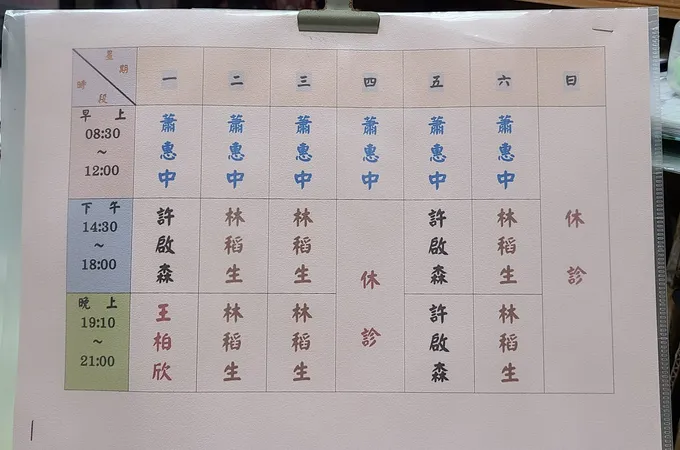 星期 時段 一 二 三 四 五 六 日
早上 08:30 ~ 12:00 蕭惠中 蕭惠中 蕭惠中 蕭惠中 蕭惠中 蕭惠中 休診
下午 14:30 ~ 18:00 許啟森 林稻生 林稻生 休診 許啟森 林稻生
晚上 19:10 ~ 21:00 王柏欣 林稻生 林稻生 許啟森 林稻生